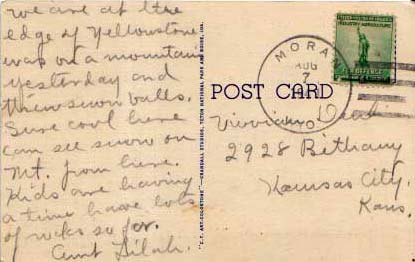 we are at the
edge of Yellowstone
was on a mountain
yesterday and
threw snow balls.
Sure cool here
can see snow on
Mt. from here.
Kids are having
a time have lots
of rocks so far.
Aunt Lilah.
"C.T. ART-COLORTONE"—CRANDALL STUDIOS, TETON NATIONAL PARK AND BOISE, IDA.
MORAN
AUG
7
WYO
UNITED STATES OF AMERICA
INDUSTRY AGRICULTURE
FOR DEFENSE
POST CARD
Deal
2928 Bethany
Kansas City,
Kans.